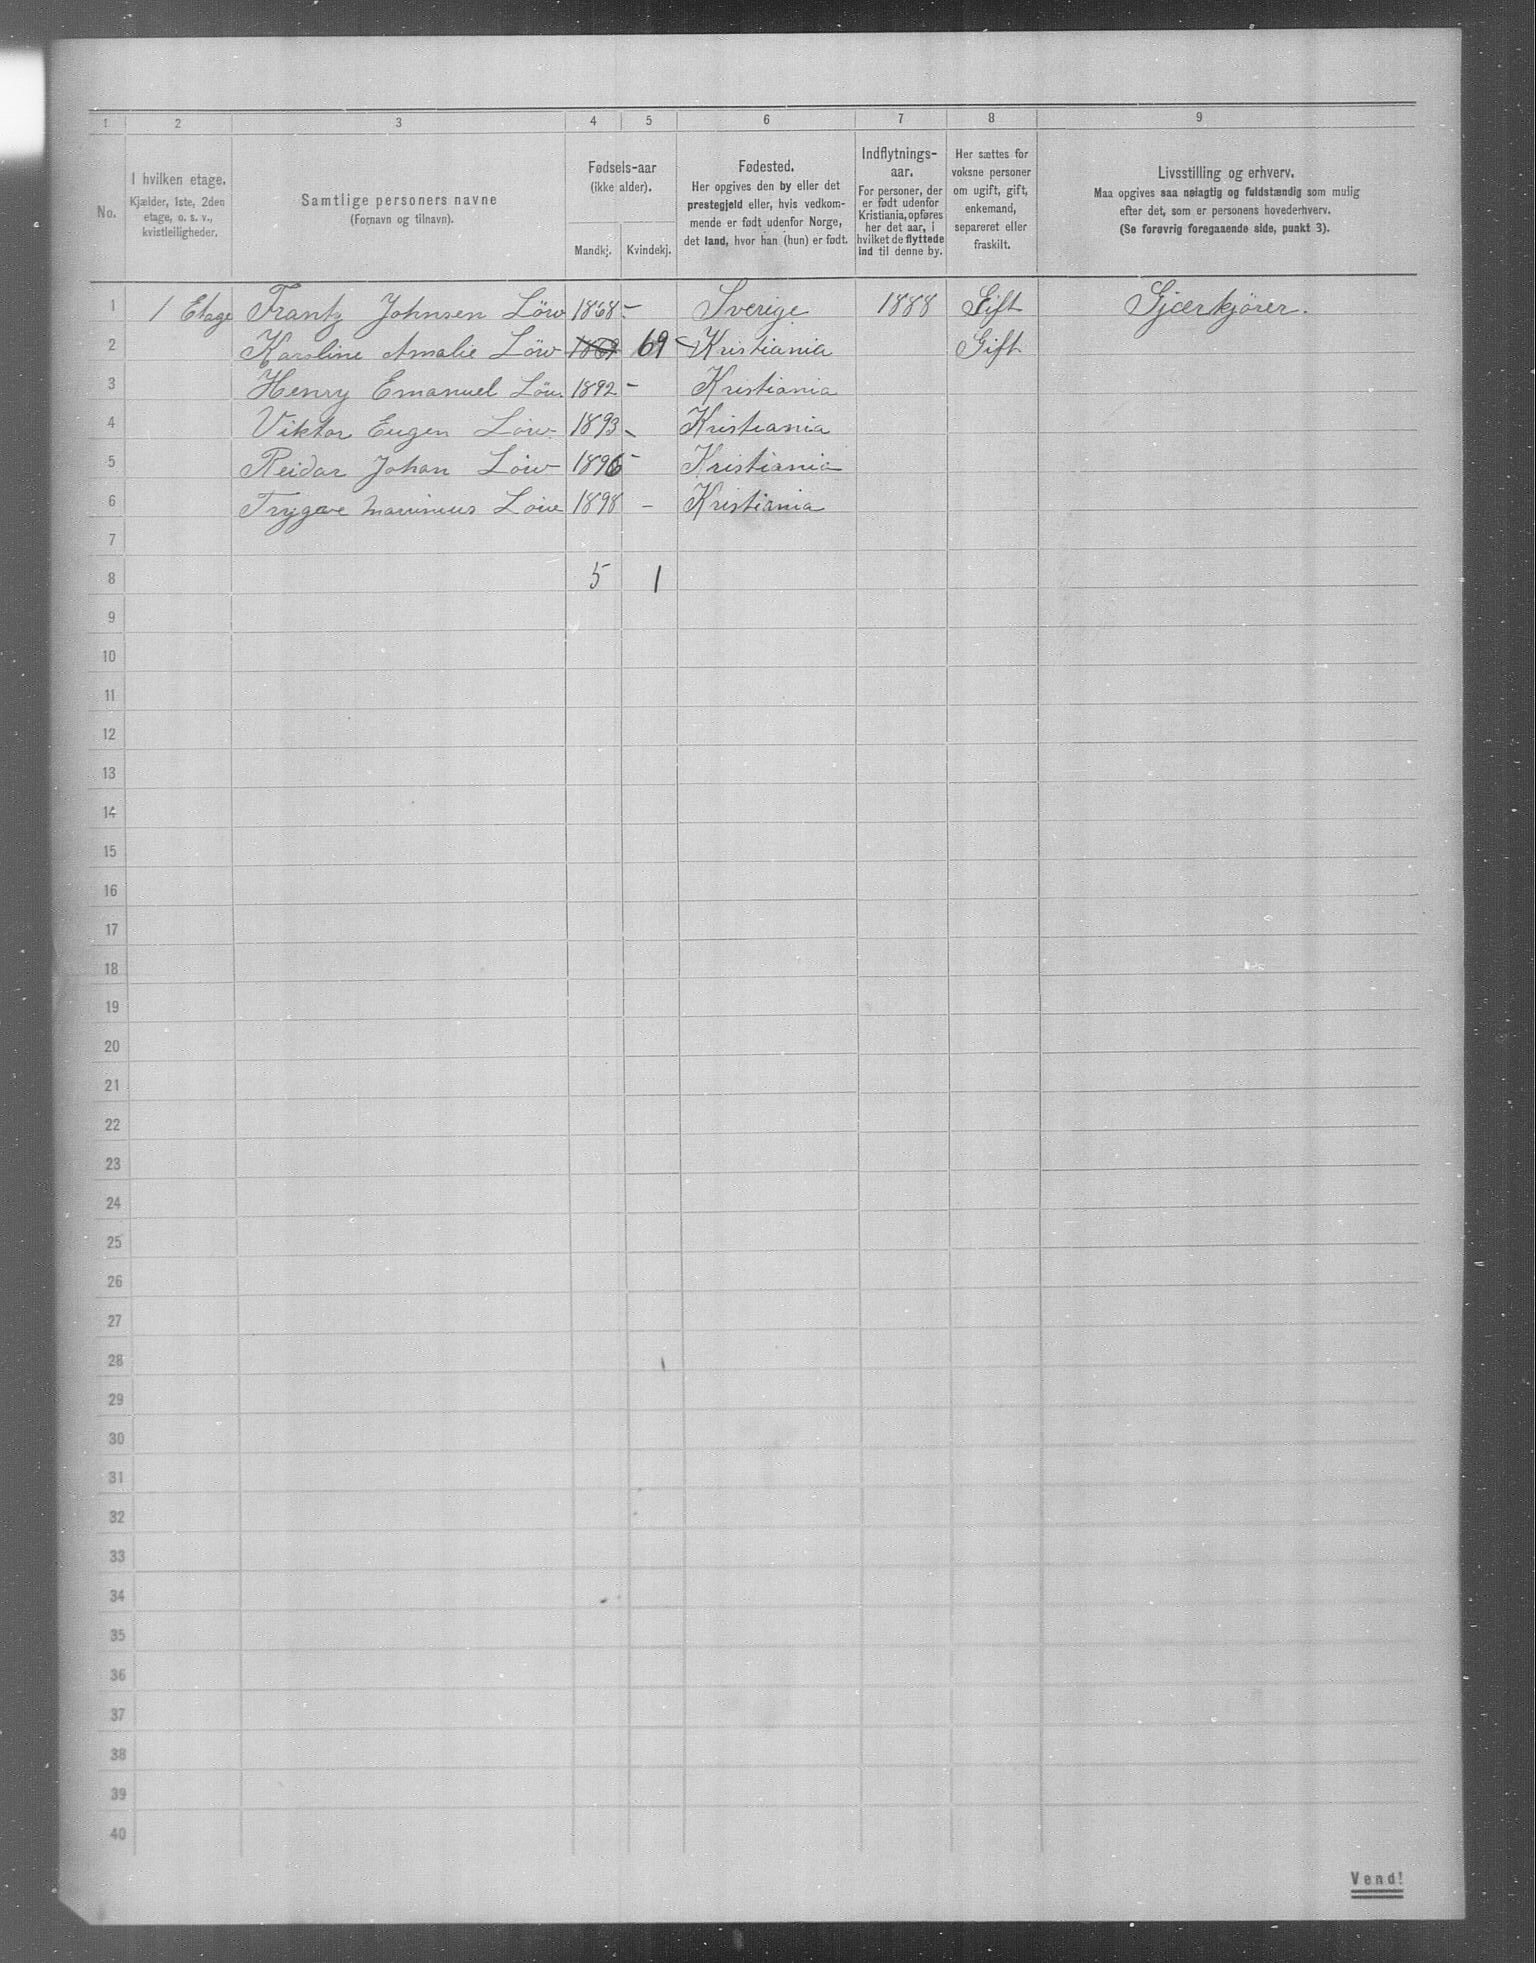 1 2 3 4 5 6 7 8 9
No.
I hvilken etage.
Kjælder, 1ste, 2den
etage, o. s. v.,
kvistleiligheder.
Samtlige personers navne
(Fornavn og tilnavn).
Fødsels-aar
(ikke alder).
Mandkj. Kvindekj.
Fødested.
Her opgives den by eller det
prestegjeld eller, hvis vedkom-
mende er født udenfor Norge,
det land, hvor han (hun) er født.
Indflytnings-
aar.
For personer, der
er født udenfor
Kristiania, opføres
her det aar, i
hvilket de flyttede
ind til denne by.
Her sættes for
voksne personer
om ugift, gift,
enkemand,
separeret eller
fraskilt.
Livsstilling og erhverv.
Maa opgives saa nøiagtig og fuldstændig som mulig
efter det, som er personens hovederhverv.
(Se forøvrig foregaaende side, punkt 3).
1 1 Etage Frantz Johnsen Löw 1868 - Sverige 1888 Gift Gjærkjörer.
2 Karoline Amalie Löw 1869 69 - Kristiania Gift
3 Henry Emanuel Löw 1892 - Kristiania
4 Viktor Eugen Löw 1893 - Kristiania
5 Reidar Johan Löw 1896 - Kristiania
6 Trygve Marinius Löw 1898 - Kristiania
7
8 5 1
9
10
11
12
13
14
15
16
17
18
19
20
21
22
23
24
25
26
27
28
29
30
31
32
33
34
35
36
37
38
39
40
Vend!